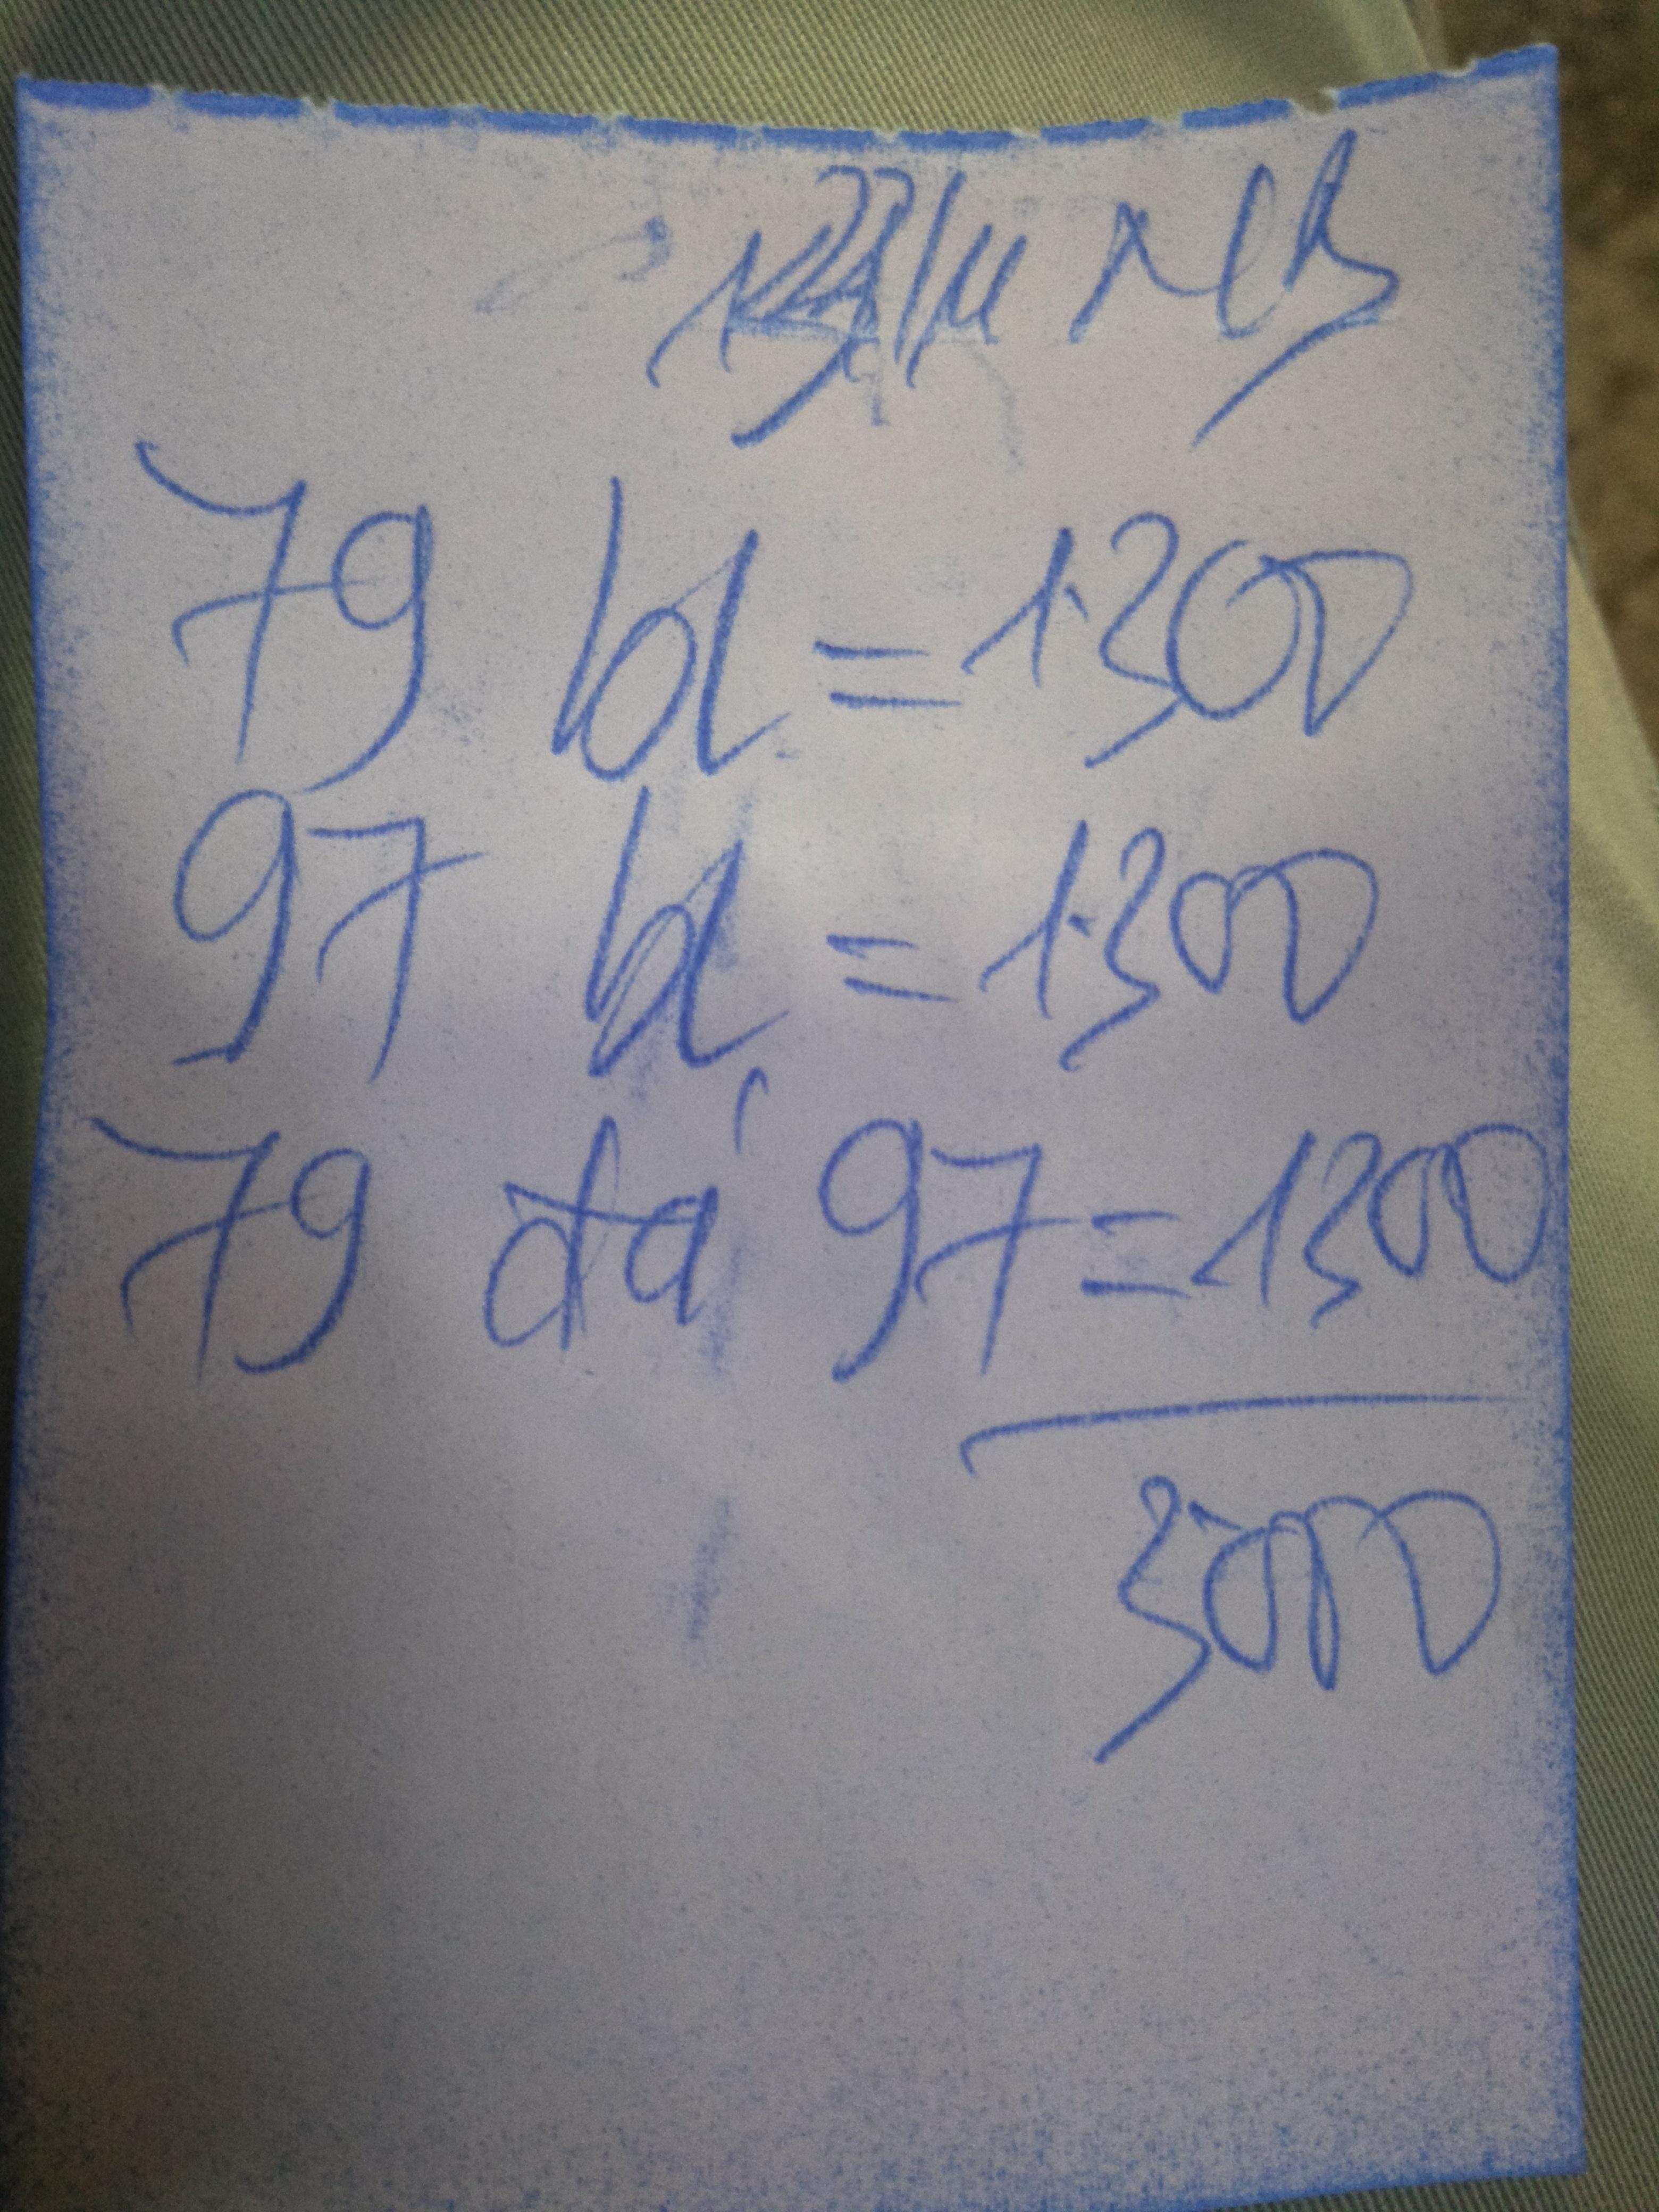 79 bl = 1300
97 bl = 1300
79 đá 97 = 1300
3000